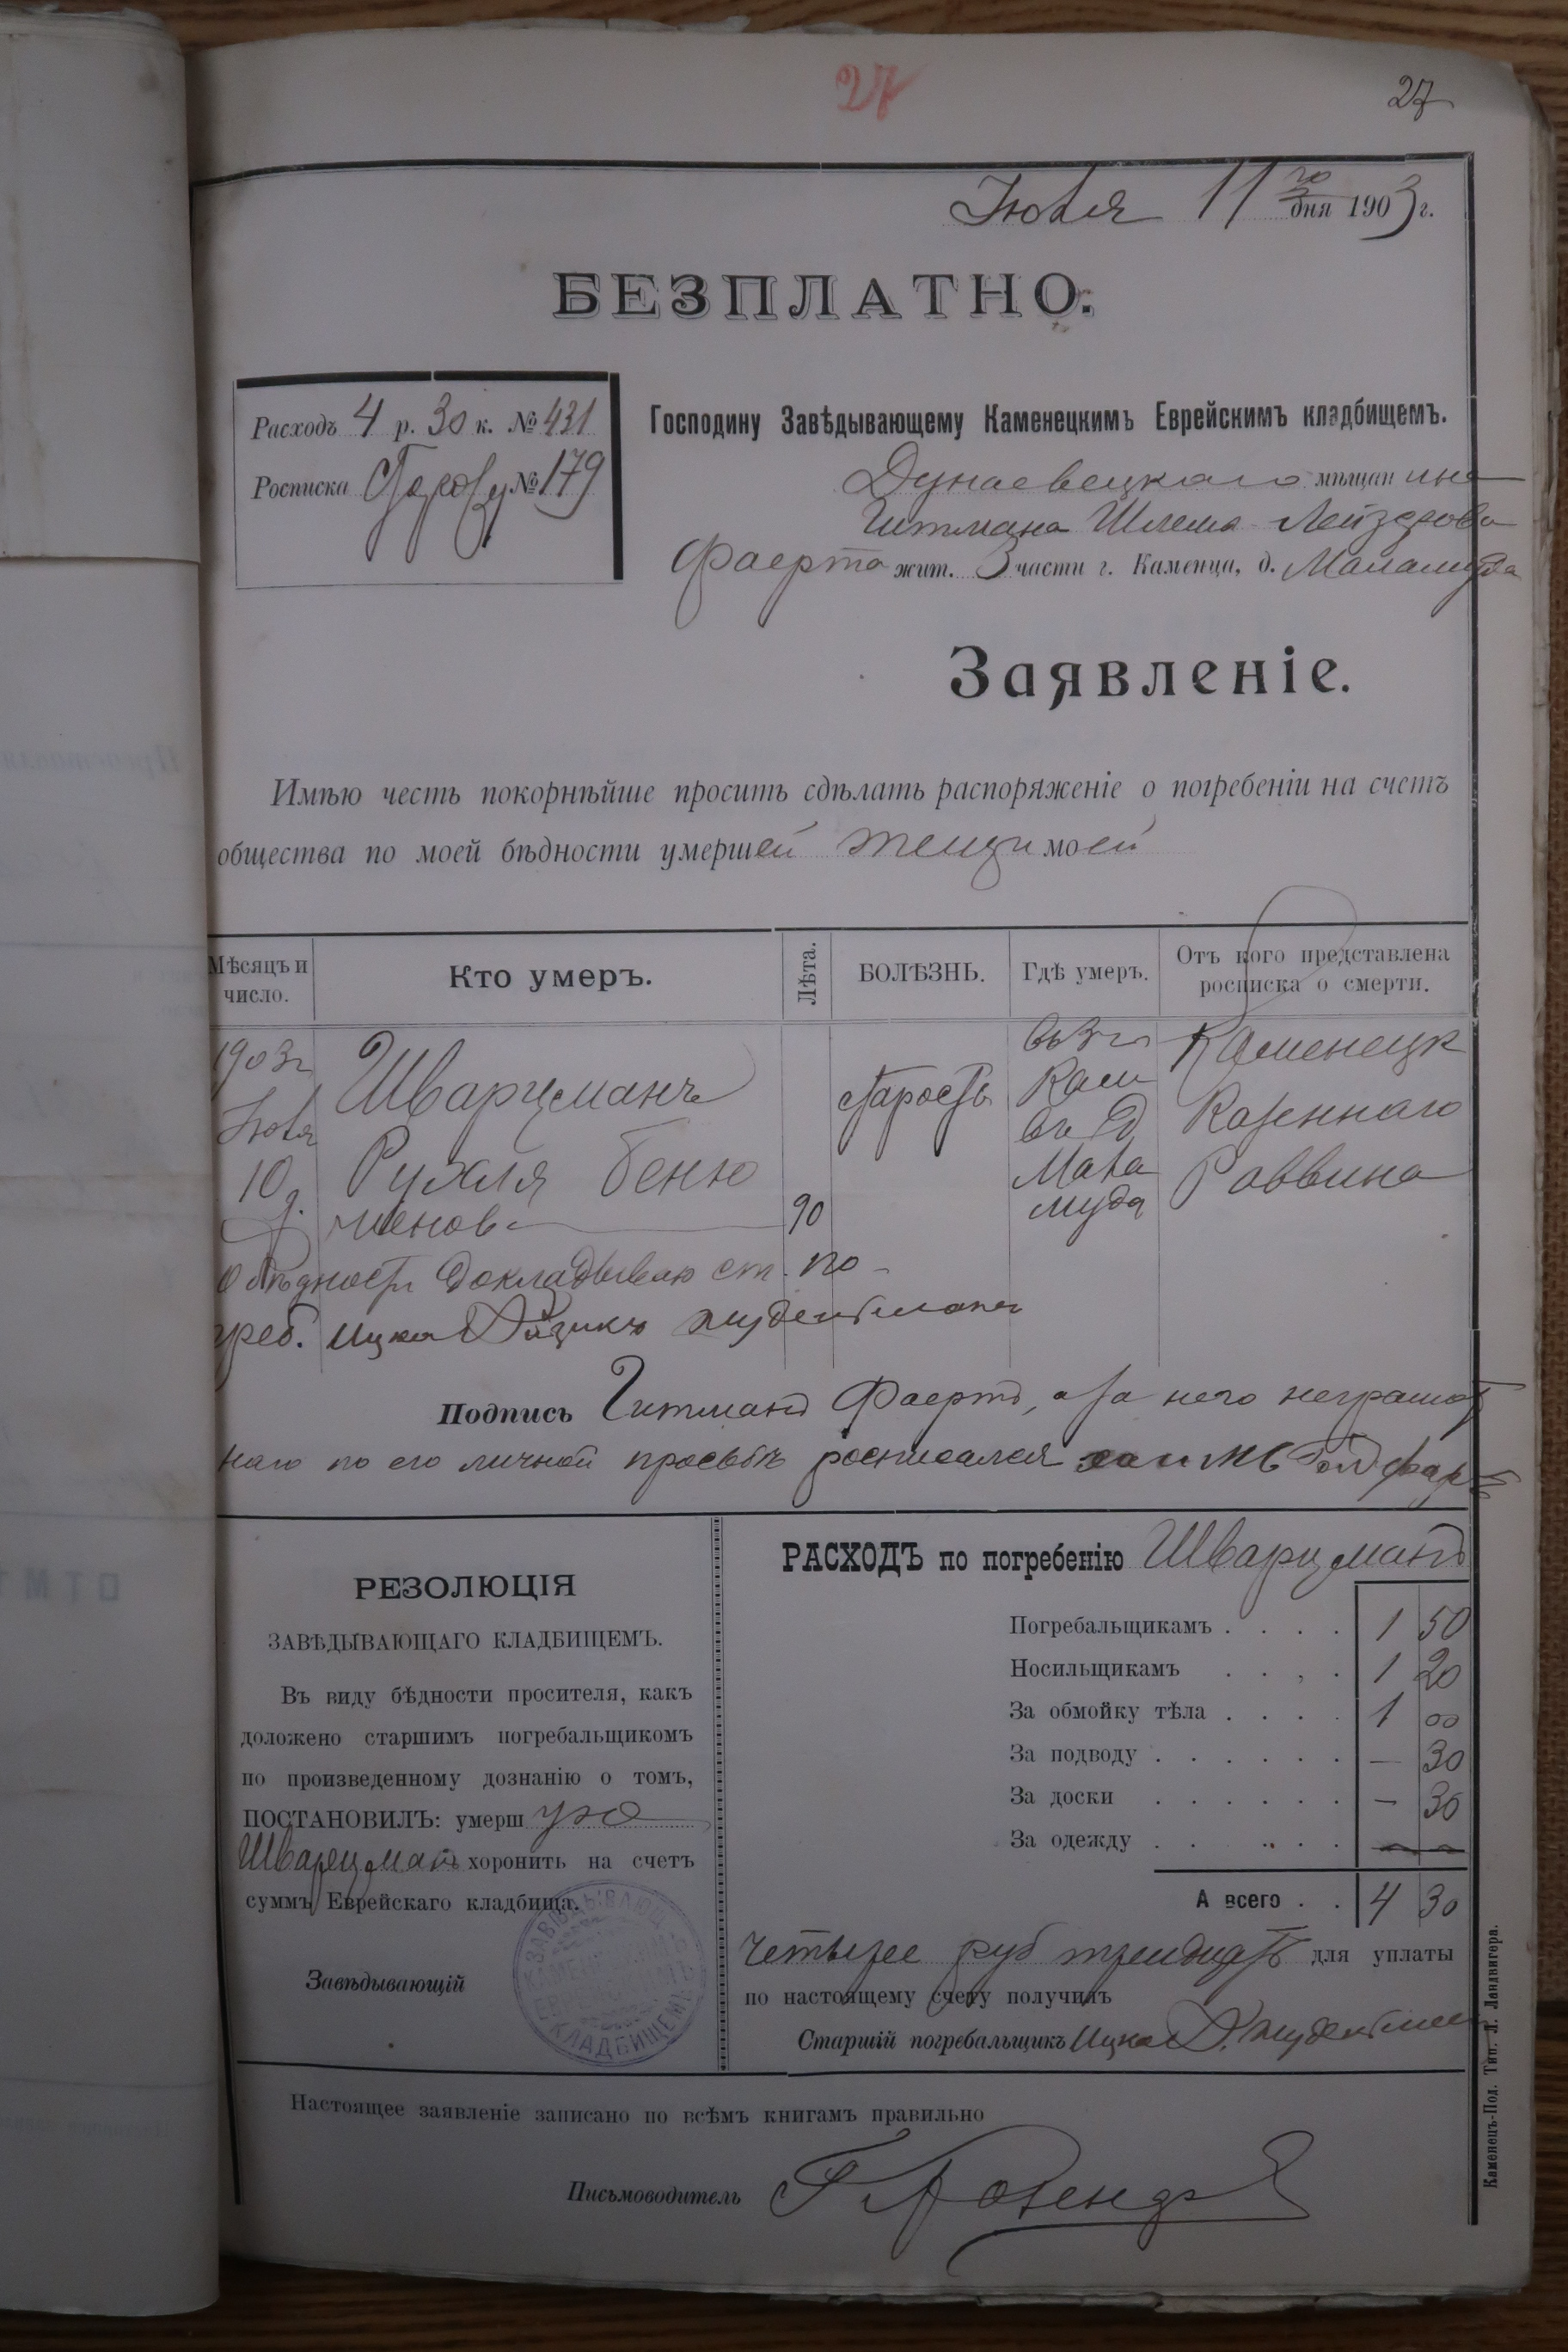 27
27
Іюля 11 го дня 1903 г.
БЕЗПЛАТНО.
Расходъ 4 р. 30 к. № 431
Росписка № 179
Господину Завѣдывающему Каменецкимъ Еврейскимъ кладбищемъ.
Дунаевецкаго мѣщанина
Гитмана Шлема Лейзерова
Фаерта жит. 3 части г. Каменца, д. Маламуда
Заявленіе.
Имѣю честь покорнѣйше просить сдѣлать распоряженіе о погребеніи на счетъ
общества по моей бѣдности умершей моей
Мѣсяцъ и число.
Кто умеръ.
Лѣта.
БОЛѢЗНЬ.
Гдѣ умеръ.
Отъ кого представлена росписка о смерти.
1903 г Іюля 10 д.
Шварцманъ
Рухля Беню
миновна
90
старость
въ 3 ч Кам въ д Мала муда
Каменецк Казеннаго Раввина
О бѣдности докладываю ст. по-
греб. Ицко Айзикъ
Подпись Гитманъ Фаертъ, а за него неграмот
наго по его личной просьбѣ росписался Хаимъ Гольдфарб
РЕЗОЛЮЦІЯ
ЗАВѢДЫВАЮЩАГО КЛАДБИЩЕМЪ.
Въ виду бѣдности просителя, какъ
доложено старшимъ погребальщикомъ
по произведенному дознанію о томъ,
ПОСТАНОВИЛЪ: умершую
Шварцманъ хоронить на счетъ
суммъ Еврейскаго кладбища.
Завѣдывающій
ЗАВѢДЫВАЮЩ. КАМЕНЕЦКИМЪ ЕВРЕЙСКИМЪ КЛАДБИЩЕМЪ
РАСХОДЪ по погребенію Шварцманъ
Погребальщикамъ . . . . 1 50
Носильщикамъ . . . . 1 20
За обмойку тѣла . . . . 1 00
За подводу . . . . . . — 30
За доски . . . . . . — 30
За одежду . . . . . — —
А всего . . 4 30
Четыре руб тридцать для уплаты
по настоящему счету получилъ
Старшій погребальщикъ Ицко А.
Настоящее заявленіе записано по всѣмъ книгамъ правильно
Письмоводитель
Каменецъ-Под. Тип. Л. Ландвигера.